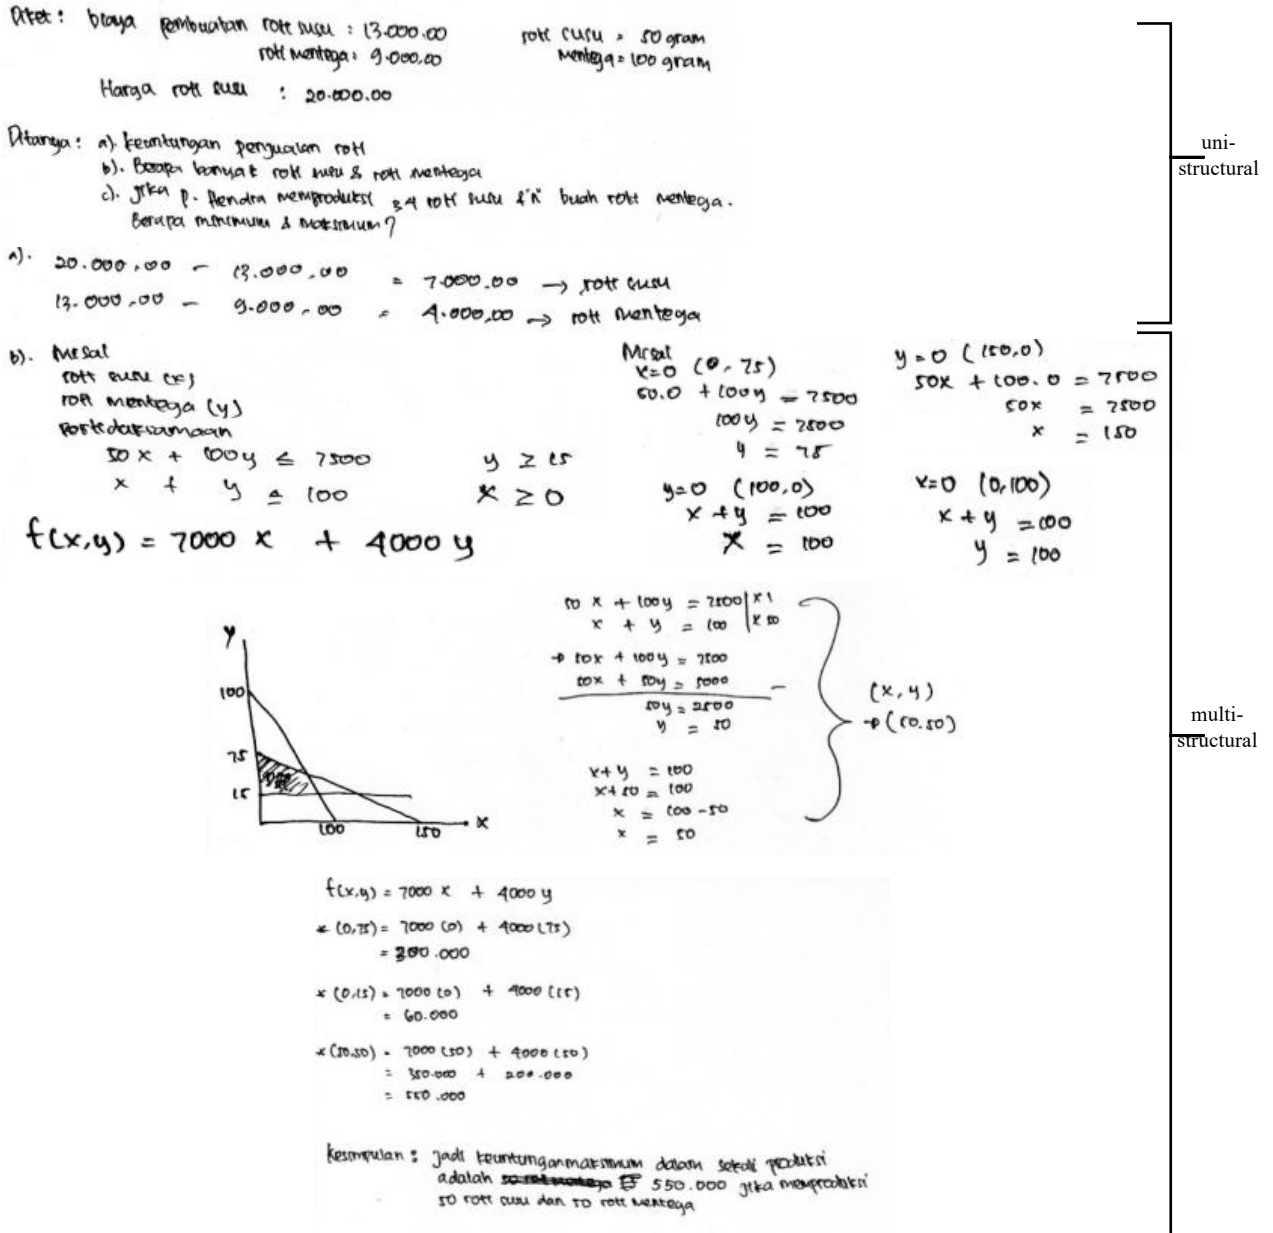 Diket : biaya pembuatan roti susu : 13.000.00 roti susu = 50 gram
roti mentega : 9.000,00 mentega = 100 gram
Harga roti susu : 20.000.00
Ditanya : a). keuntungan penjualan roti
b). Berapa banyak roti susu & roti mentega
c). jika p. Hendra memproduksi 34 roti susu & "n" buah roti mentega.
Berapa minimum & maksimum ?
uni-
structural
a). 20.000,00 - 13.000,00 = 7.000.00 → roti susu
13.000,00 - 9.000,00 = 4.000,00 → roti mentega
b). Misal
roti susu (x)
roti mentega (y)
Pertidaksamaan
50x + 100y ≤ 7500 y ≥ 15
x + y ≤ 100 x ≥ 0
f(x,y) = 7000 x + 4000 y
Misal
x=0 (0, 75)
50.0 + 100y = 7500
100y = 7500
y = 75
y=0 (150,0)
50x + 100.0 = 7500
50x = 7500
x = 150
y=0 (100,0)
x + y = 100
x = 100
x=0 (0,100)
x + y = 100
y = 100
50 x + 100y = 7500 | x1
x + y = 100 | x 50
→ 50x + 100y = 7500
50x + 50y = 5000 -
50y = 2500
y = 50
x+y = 100
x+50 = 100
x = 100 - 50
x = 50
(x, y)
→ (50.50)
Y
100
75
15
100 150 x
multi-
structural
f(x,y) = 7000 x + 4000 y
* (0,75) = 7000 (0) + 4000 (75)
= 300.000
* (0,15) = 7000 (0) + 4000 (15)
= 60.000
* (50.50) = 7000 (50) + 4000 (50)
= 350.000 + 200.000
= 550.000
Kesimpulan : jadi keuntungan maksimum dalam sekali produksi
adalah 550.000 jika memproduksi
50 roti susu dan 50 roti mentega